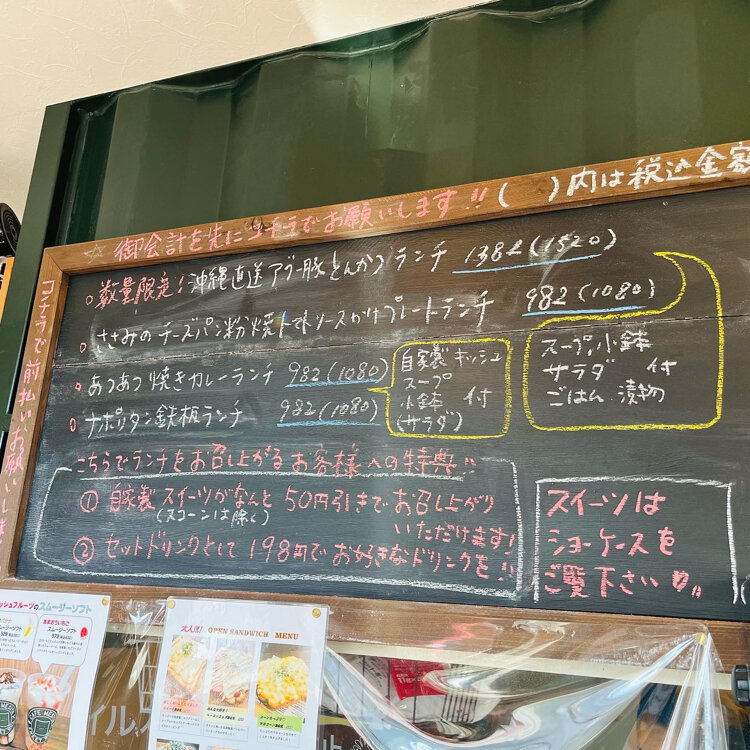 御会計を先にコチラでお願いします!! ( )内は税込金額
コチラで前払いお願いしま
数量限定!沖縄直送アグー豚とんかつランチ 1382(1520)
ささみのチーズパン粉焼トマトソースがけプレートランチ 982(1080)
あつあつ焼きカレーランチ 982(1080)
ナポリタン鉄板ランチ 982(1080)
自家製キッシュ
スープ
小鉢 付
(サラダ)
スープ,小鉢
サラダ 付
ごはん.漬物
こちらでランチをお召し上がるお客様への特典!!
① 自家製スイーツがなんと50円引きでお召し上がり
(スコーンは除く)
いただけます!
② セットドリンクとして198円でお好きなドリンクを!!
スイーツは
ショーケースを
ご覧下さい
ッシュフルーツのスムージーソフト
スムージーソフト
あまおういちご
スムージーソフト
大人派! OPEN SANDWICH MENU